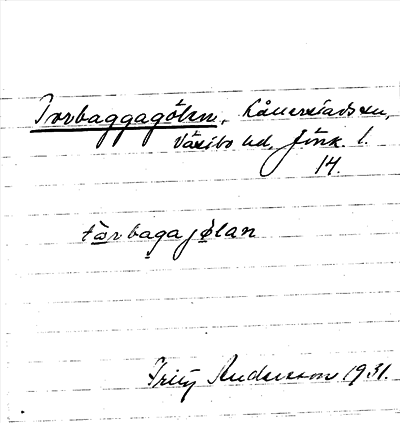 Torbaggagölen, Kållerstads sn,
Västbo hd, Jönk. l.
14.
tårbagajølan
Fritz Andersson 1931.